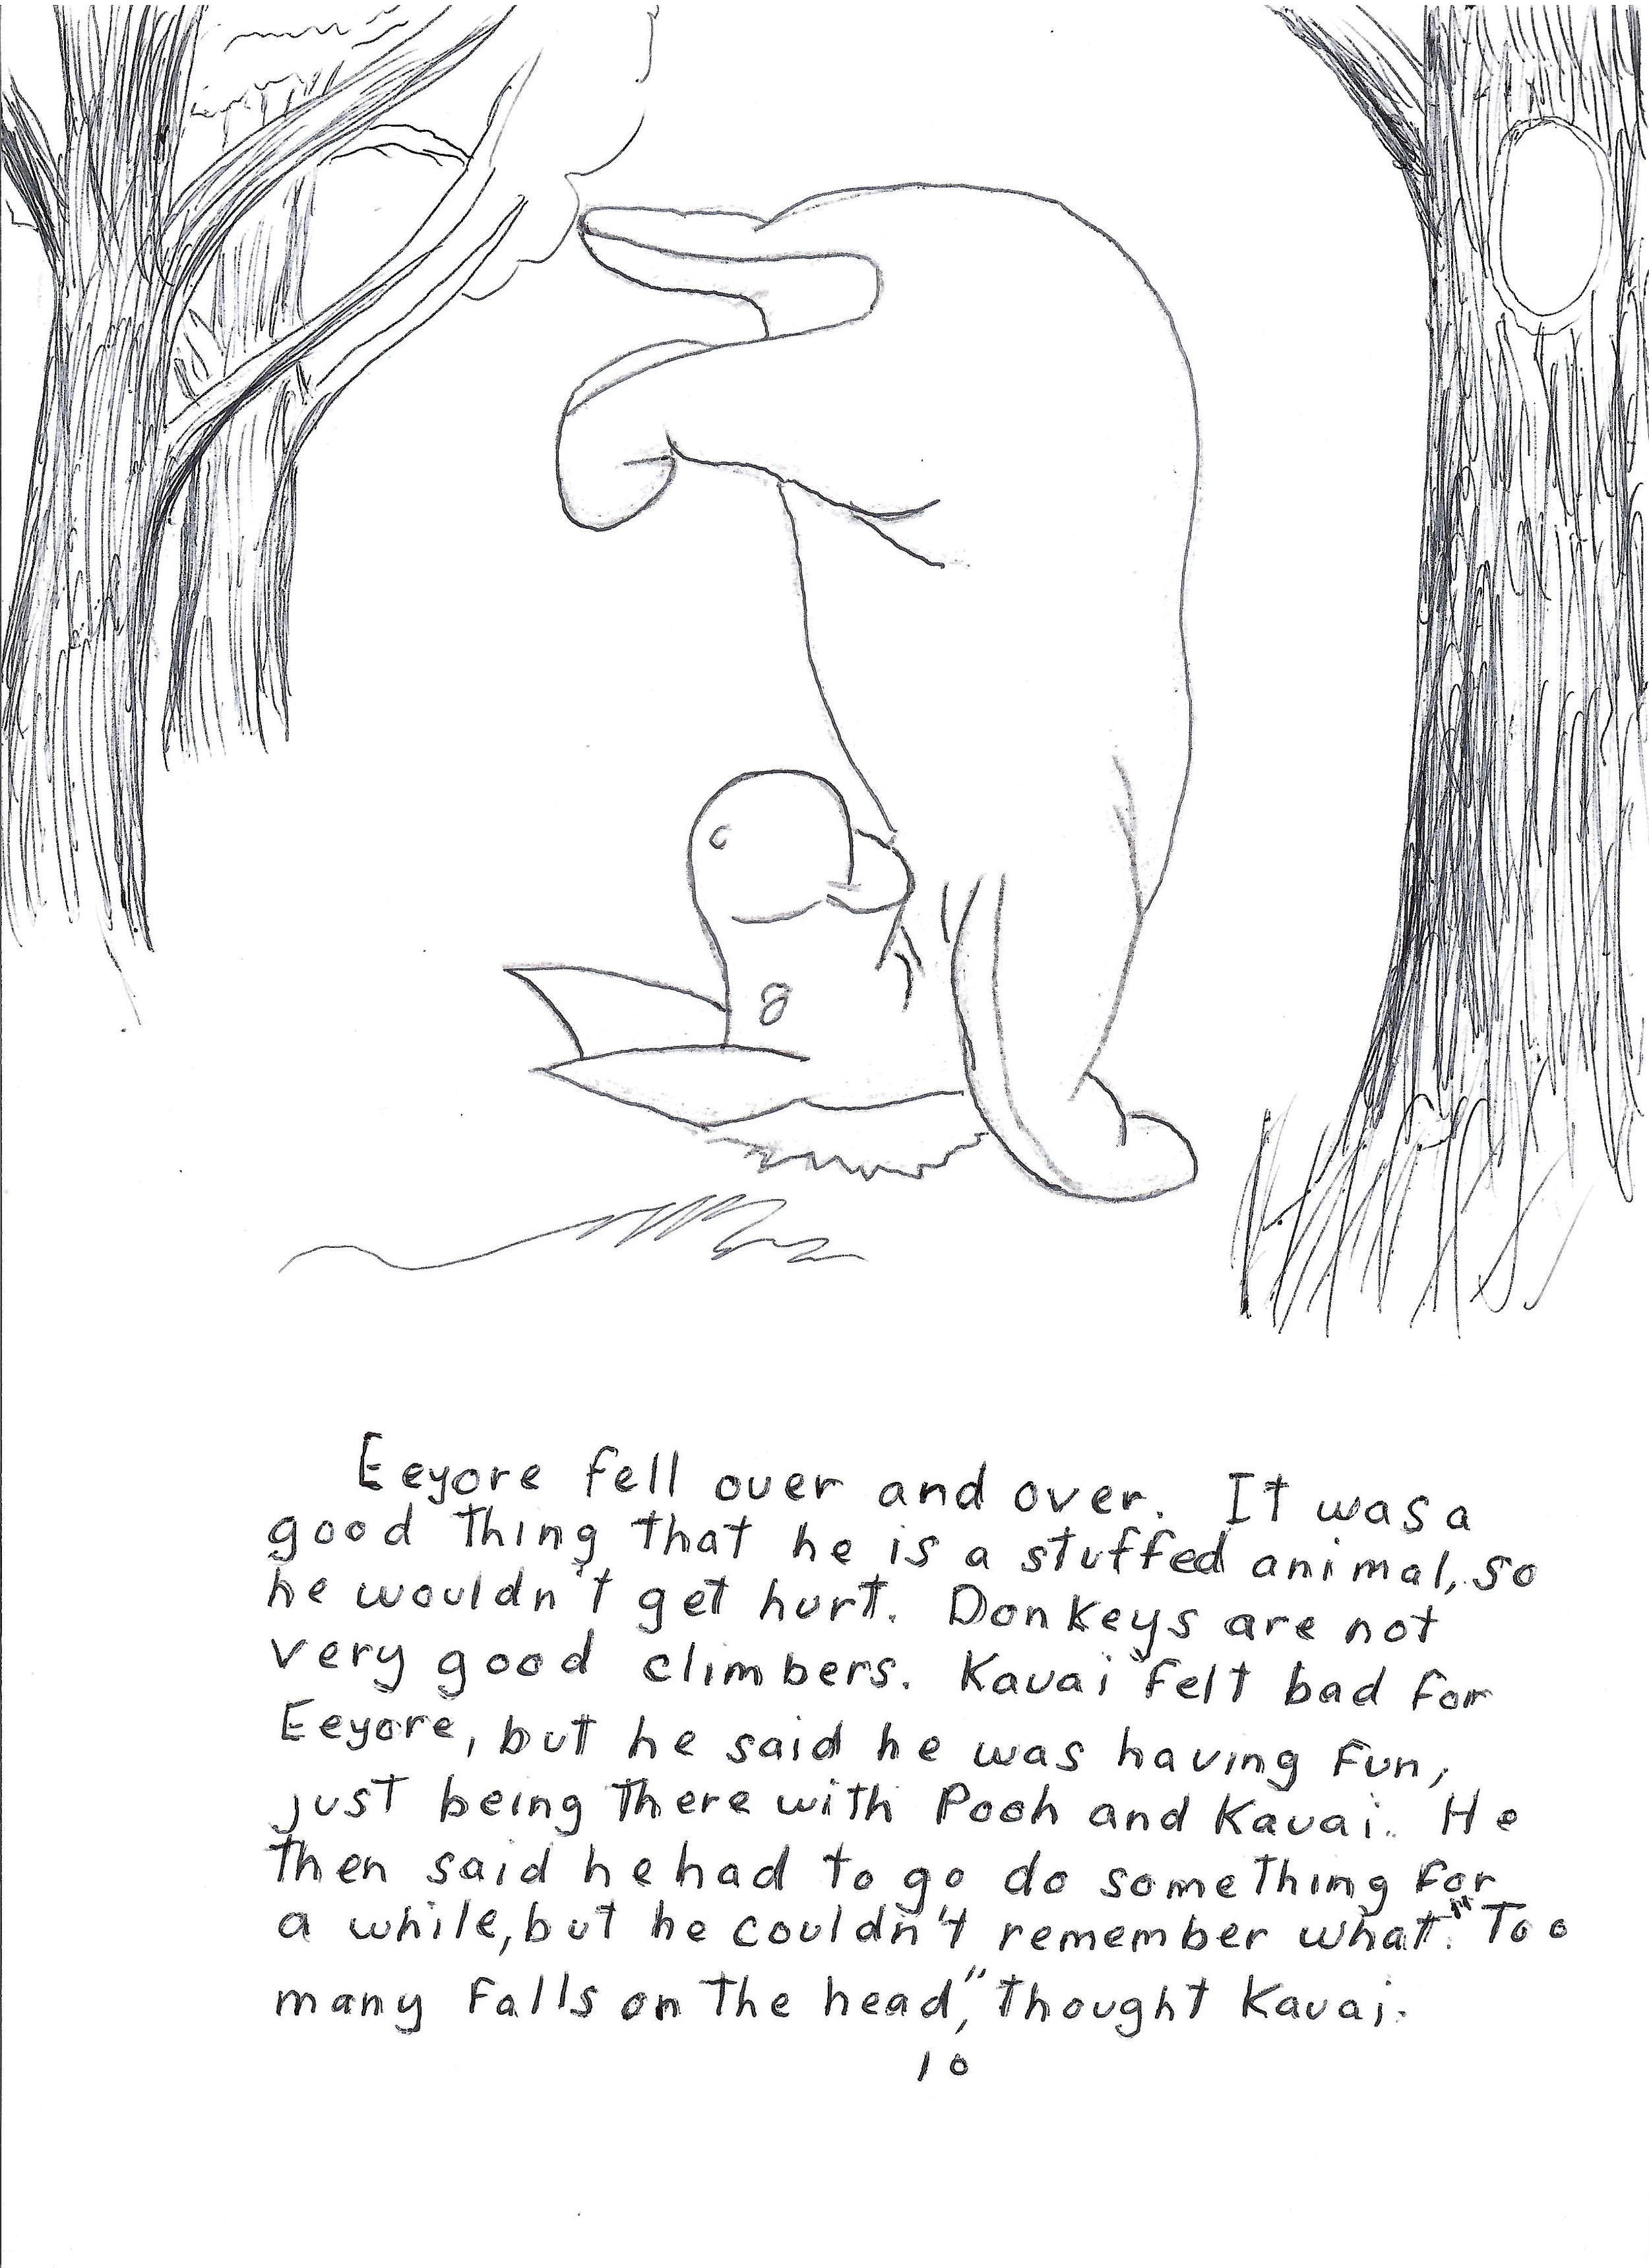 Eeyore fell over and over. It was a
good thing that he is a stuffed animal, so
he wouldn't get hurt. Donkeys are not
very good climbers. Kauai felt bad for
Eeyore, but he said he was having fun,
just being there with Pooh and Kauai. He
then said he had to go do something for
a while, but he couldn't remember what. "Too
many falls on the head," thought Kauai.
10